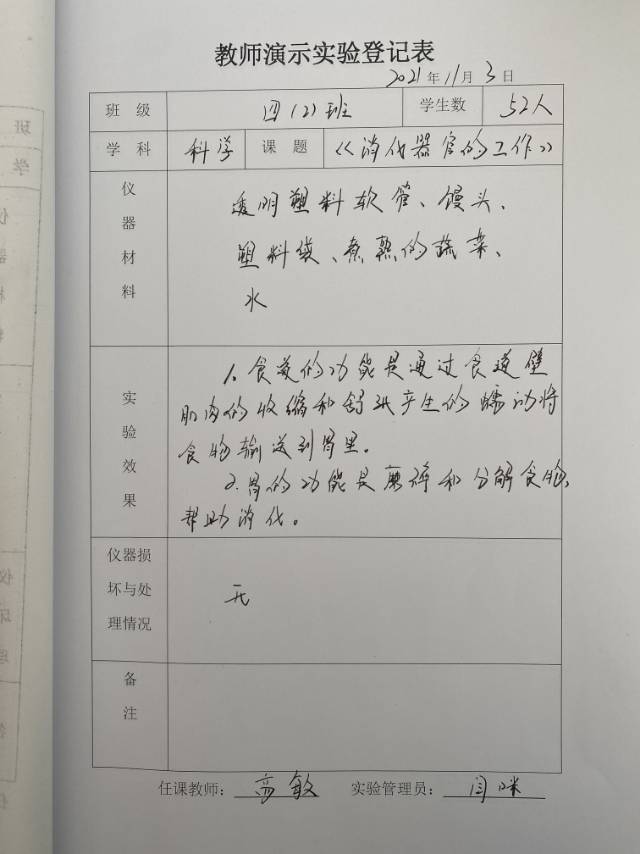 教师演示实验登记表
2021年11月3日
班级 四(2)班 学生数 52人
学科 科学 课题 《消化器官的工作》
仪器材料
透明塑料软管、馒头、
塑料袋、煮熟的蔬菜、
水
实验效果
1.食道的功能是通过食道壁
肌肉的收缩和舒张产生的蠕动将
食物输送到胃里。
2.胃的功能是磨碎和分解食物,
帮助消化。
仪器损
坏与处
理情况
无
备注
任课教师: 高敏 实验管理员: 闫咪